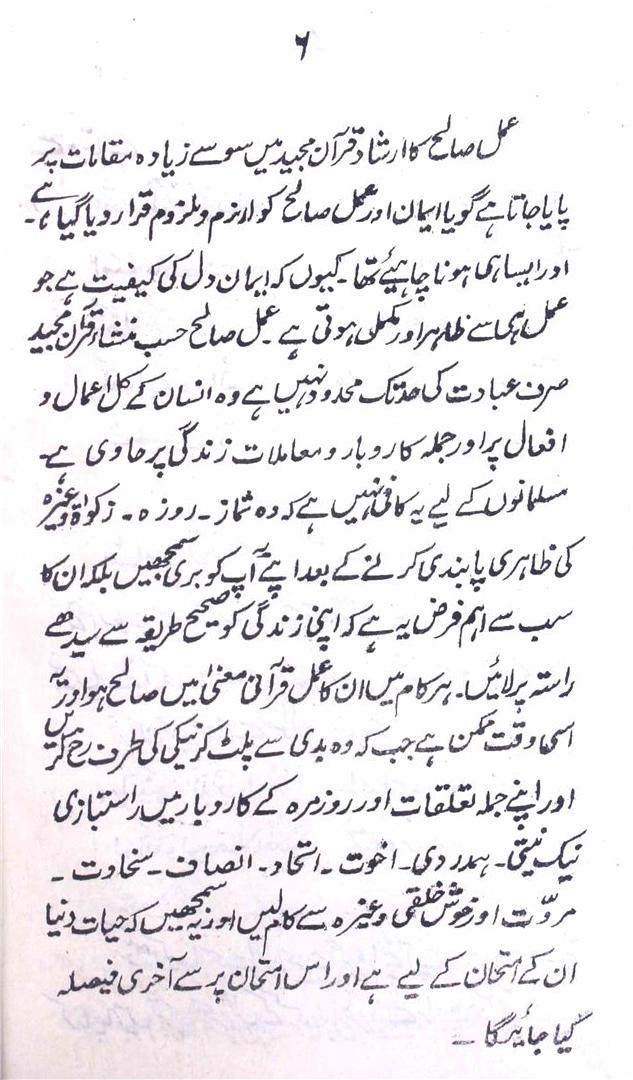 ۶
عمل صالح کا ارشاد قرآن مجید میں سو سے زیادہ مقامات پر
پایا جاتا ہے گویا ایمان اور عمل صالح کو لازم و ملزوم قرار دیا گیا ہے۔
اور ایسا ہی ہونا چاہیئے تھا۔ کیوں کہ ایمان دل کی کیفیت ہے جو
عمل ہی سے ظاہر اور مکمل ہوتی ہے۔ عمل صالح حسب منشاء قرآن مجید
صرف عبادت کی حد تک محدود نہیں ہے وہ انسان کے کل اعمال و
افعال پر اور جملہ کاروبار و معاملات زندگی پر حاوی ہے۔
مسلمانوں کے لیے یہ کافی نہیں ہے کہ وہ نماز۔ روزہ۔ زکوٰۃ وغیرہ
کی ظاہری پابندی کرنے کے بعد اپنے آپ کو بری سمجھیں بلکہ ان کا
سب سے اہم فرض یہ ہے کہ اپنی زندگی کو صحیح طریقہ سے سیدھے
راستہ پر لائیں۔ ہر کام میں ان کا عمل قرآنی معنیٰ میں صالح ہو اور یہ
اسی وقت ممکن ہے جب کہ وہ بدی سے پلٹ کر نیکی کی طرف رخ کریں
اور اپنے جملہ تعلقات اور روزمرہ کے کاروبار میں راستبازی
نیک نیتی۔ ہمدردی۔ اخوت۔ اتحاد۔ انصاف۔ سخاوت۔
مروّت اور خوش خلقی وغیرہ سے کام لیں اور یہ سمجھیں کہ حیات دنیا
ان کے امتحان کے لیے ہے اور اس امتحان پر سے آخری فیصلہ
کیا جائیگا۔